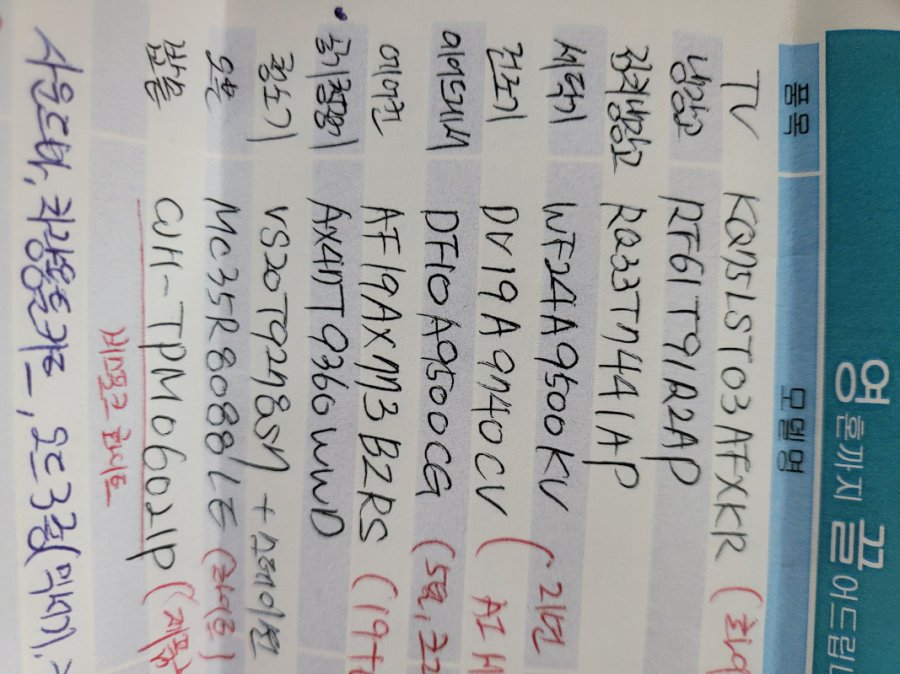 영혼까지 끌어드립니
품목 모델명
TV KQ75LST03AFXKR (화이
냉장고 RF61T91R2AP
김치냉장고 RQ33T7441AP
세탁기 WF24A9500KV (그리면
건조기 DV19A9740CV (AI
에어드레서 DF10A9500CG (5벌,
에어컨 AF19AX773BZRS (19
공기청정기 AX47T9360WWD
청소기 VS20T9278S7 + 스테이션
오븐 MC35R8088LE (라이트)
밥솥 CJH-TPM0602IP (
비스포크 큐커
사은품, 오븐 3종(믹서기,